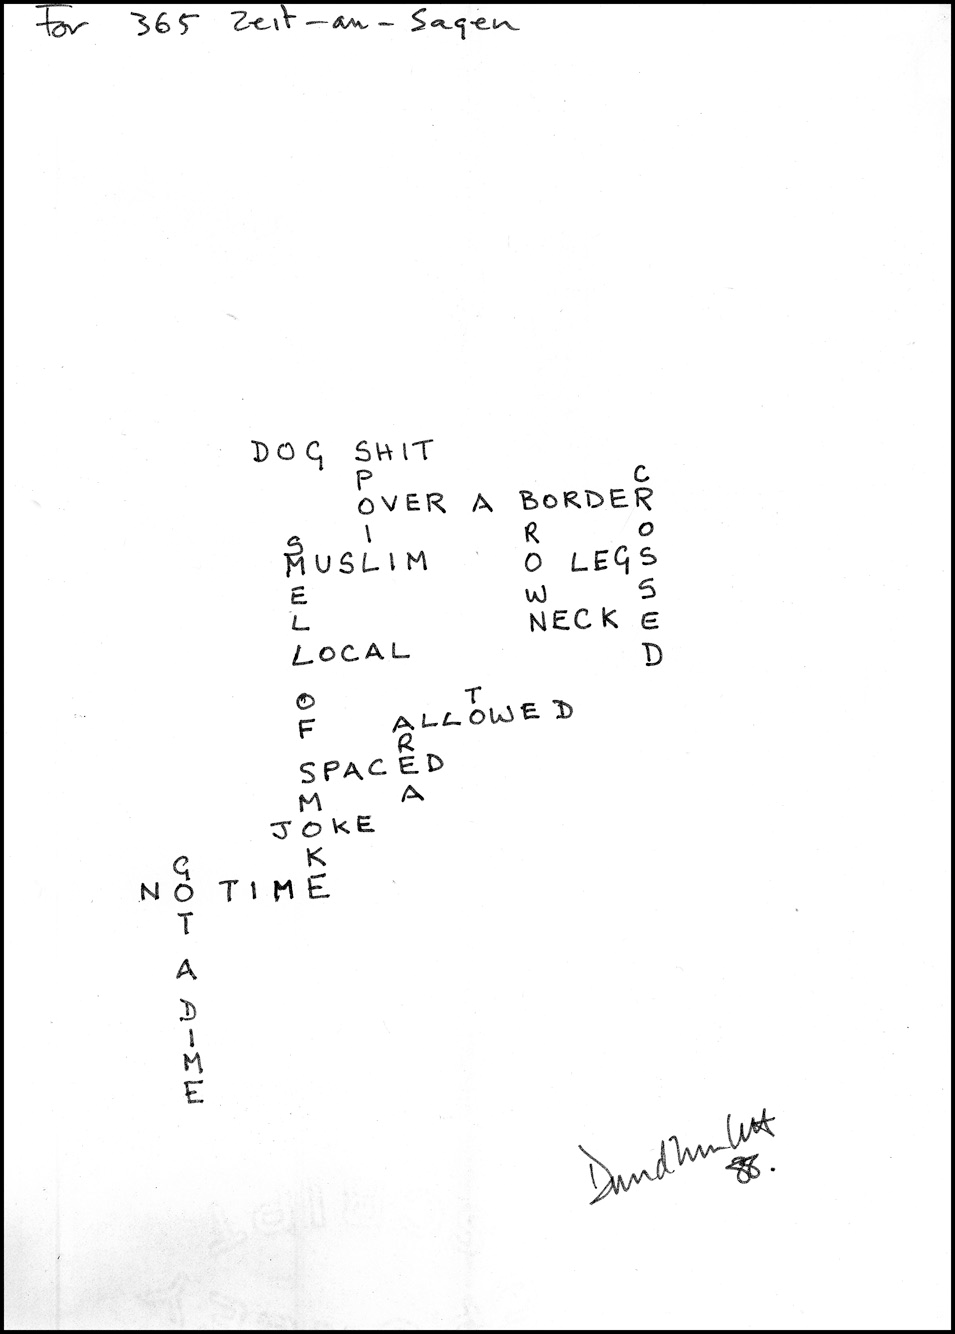 For 365 Zeit-an-Sagen
DOG SHIT
SPOIL
CROSSED
OVER A BORDER
BROWN
SMELL OF SMOKE
MUSLIM
LEGS
NECK
LOCAL
TO
ALLOWED
AREA
SPACED
JOKE
GOT A DIME
NO TIME
88.